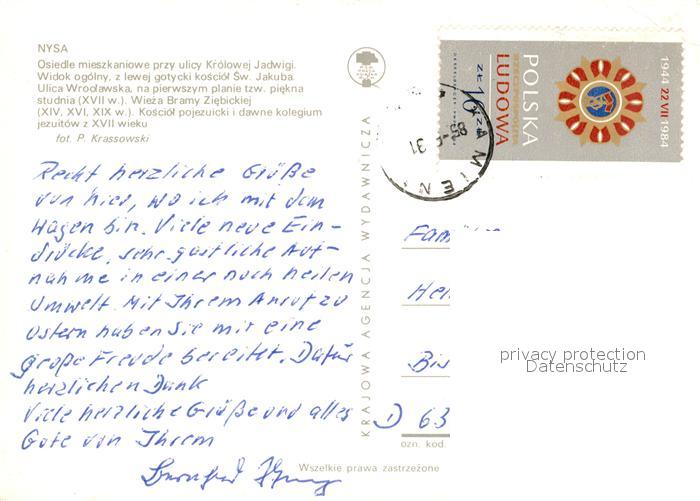 NYSA
Osiedle mieszkaniowe przy ulicy Królowej Jadwigi.
Widok ogólny, z lewej gotycki kościół Św. Jakuba.
Ulica Wrocławska, na pierwszym planie tzw. piękna
studnia (XVII w.). Wieża Bramy Ziębickiej
(XIV, XVI, XIX w.). Kościół pojezuicki i dawne kolegium
jezuitów z XVII wieku
fot. P. Krassowski
Recht herzliche Grüße
von hier, wo ich mit dem
Wagen bin. Viele neue Ein-
drücke, sehr gastliche Auf-
nahme in einer noch heilen
Umwelt. Mit Ihrem Anruf zu
Ostern haben Sie mir eine
große Freude bereitet. Dafür
herzlichen Dank
Viele herzliche Grüße und alles
Gute von Ihrem
KRAJOWA AGENCJA WYDAWNICZA
1944 22 VII 1984
POLSKA
LUDOWA
10 ZŁ
KAMIEN
31
85
Fam
Hei
Bis
D 63
ozn. kod.
Wszelkie prawa zastrzeżone
privacy protection
Datenschutz